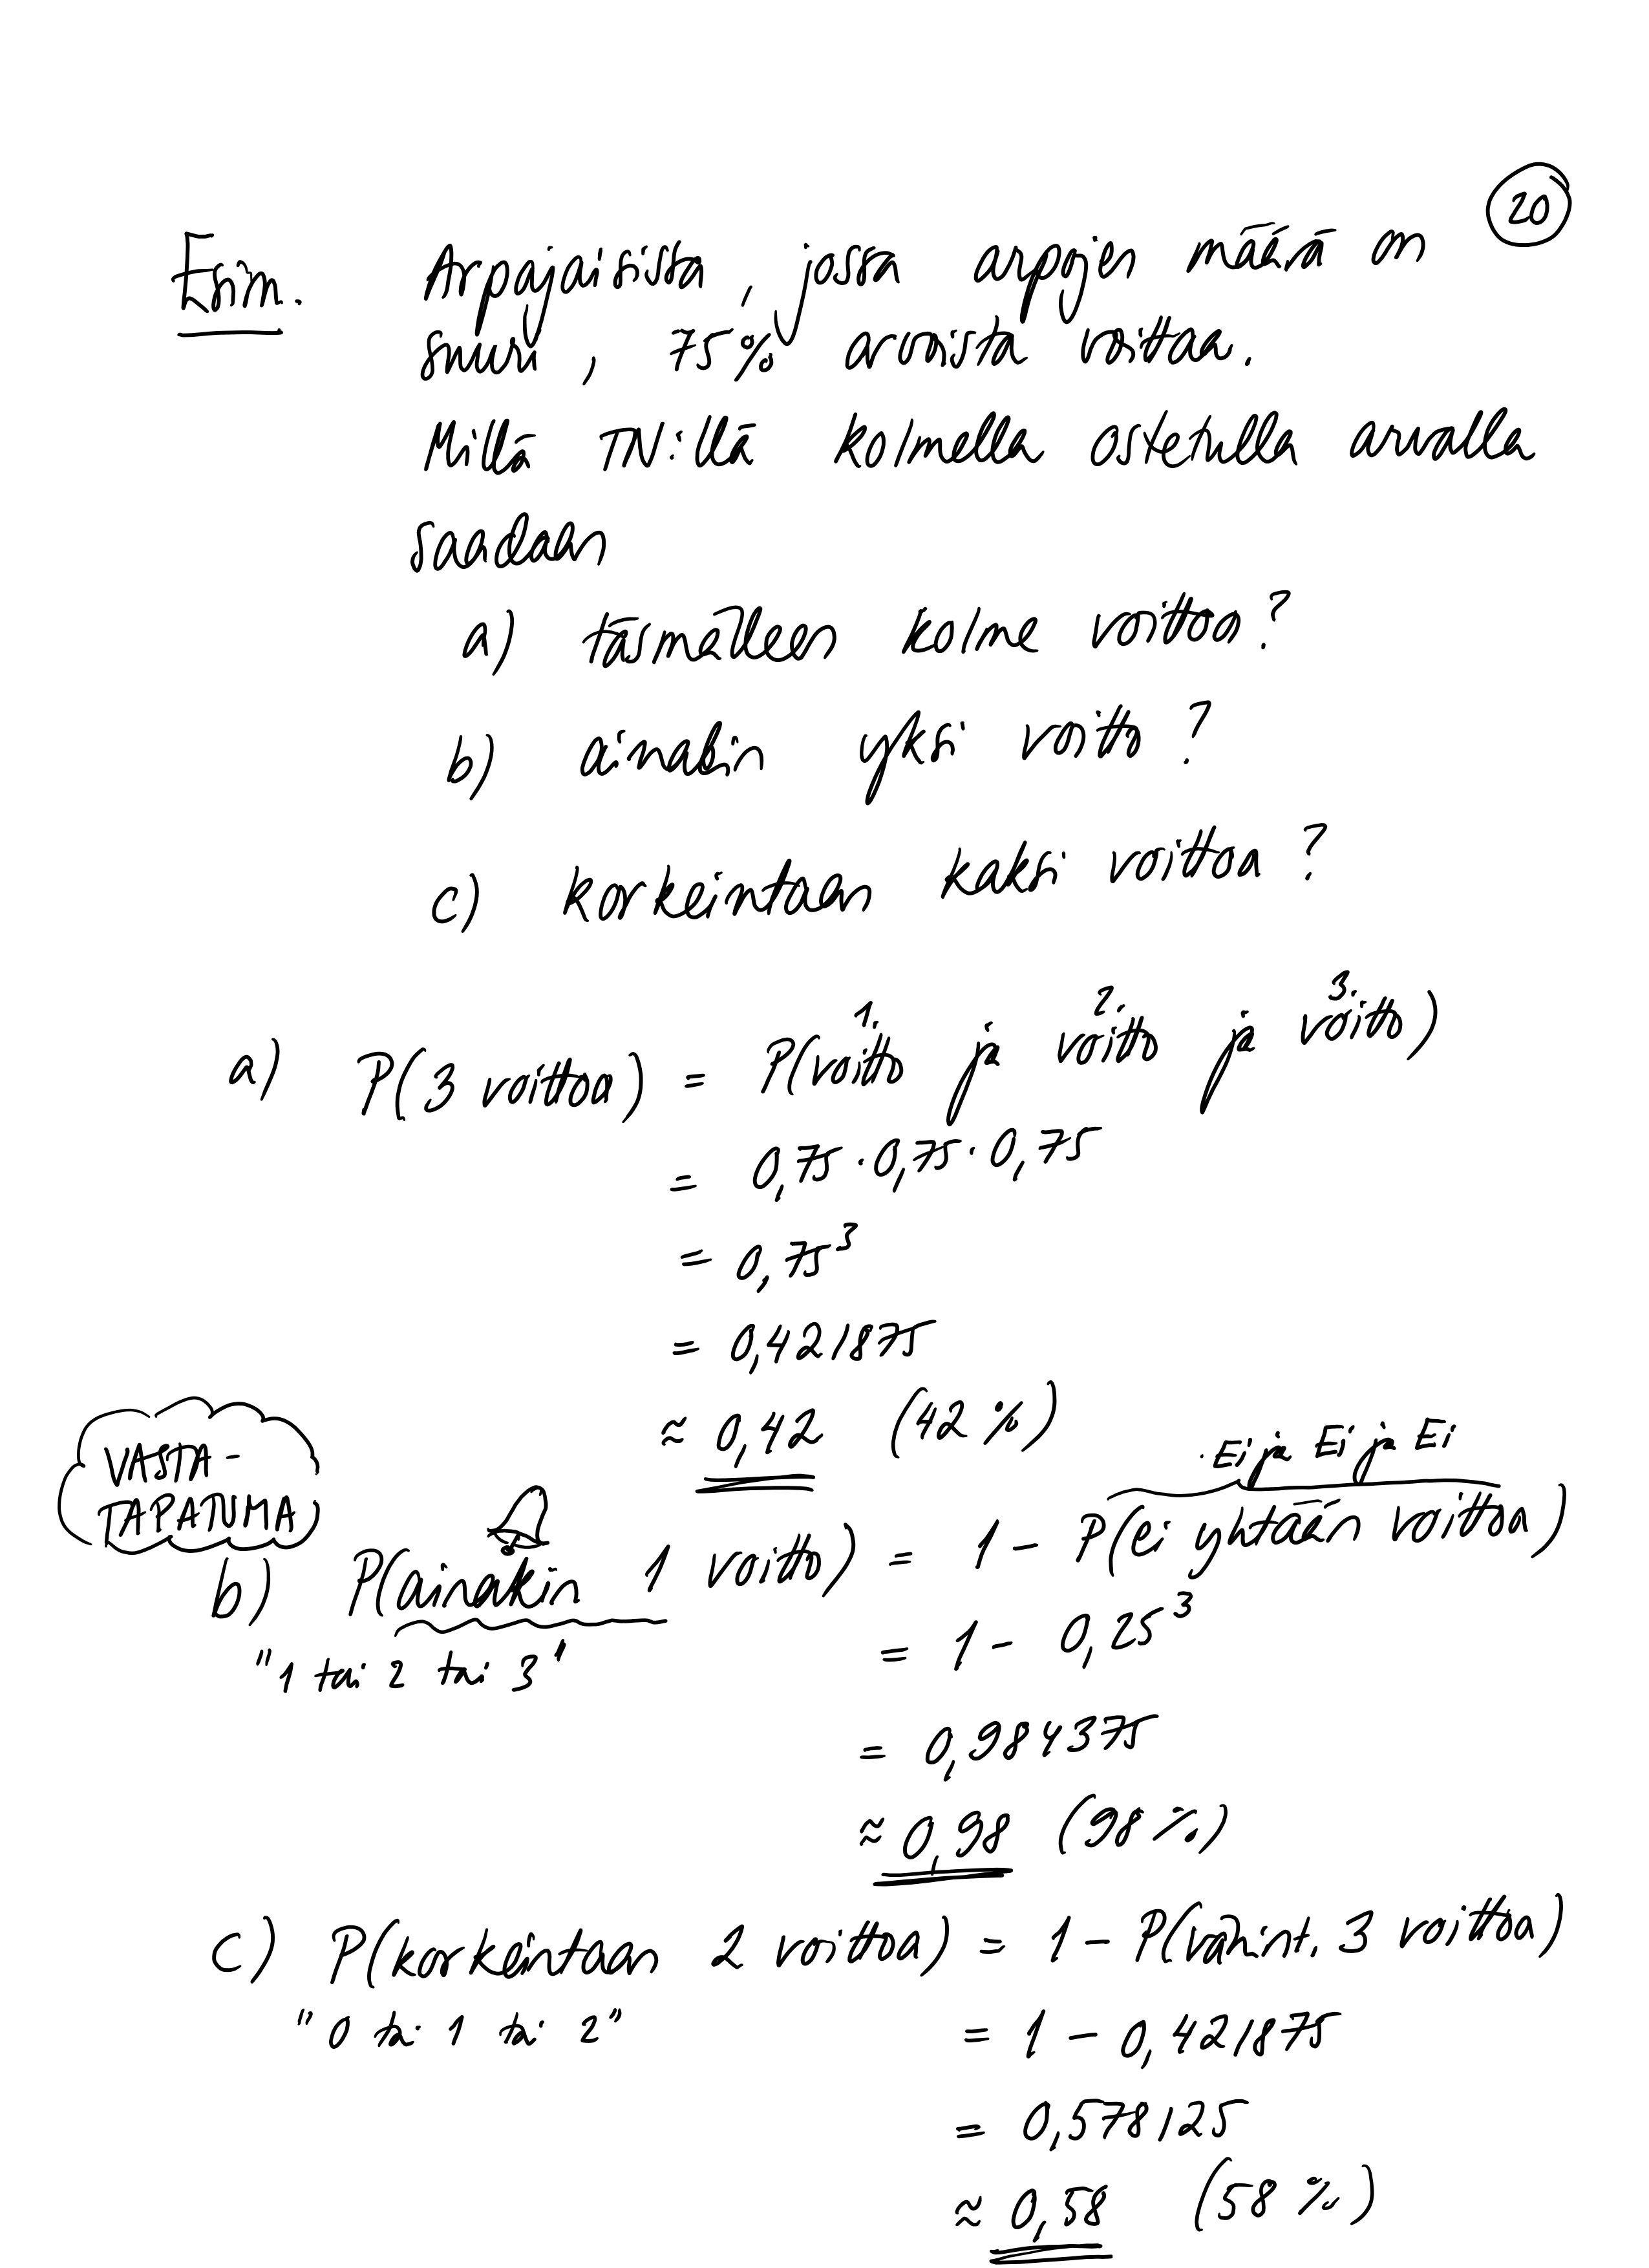 20
Esim. Arpajaisissa, jossa arpojen määrä on
suuri, 75% arvoista voittaa.
Millä TN:llä kolmella ostetulla arvalla
saadaan
a) täsmälleen kolme voittoa?
b) ainakin yksi voitto?
c) korkeintaan kaksi voittoa?
1. 2. 3.
a) P(3 voittoa) = P(voitto ja voitto ja voitto)
= 0,75 · 0,75 · 0,75
= 0,75³
= 0,421875
≈ 0,42 (42 %)
VASTA-
TAPATUMA
Ei ja Ei ja Ei
b) P(ainakin 1 voitto) = 1 - P(ei yhtään voittoa)
"1 tai 2 tai 3" = 1 - 0,25³
= 0,984375
≈ 0,98 (98 %)
c) P(korkeintaan 2 voittoa) = 1 - P(vähint. 3 voittoa)
"0 tai 1 tai 2" = 1 - 0,421875
= 0,578125
≈ 0,58 (58 %)